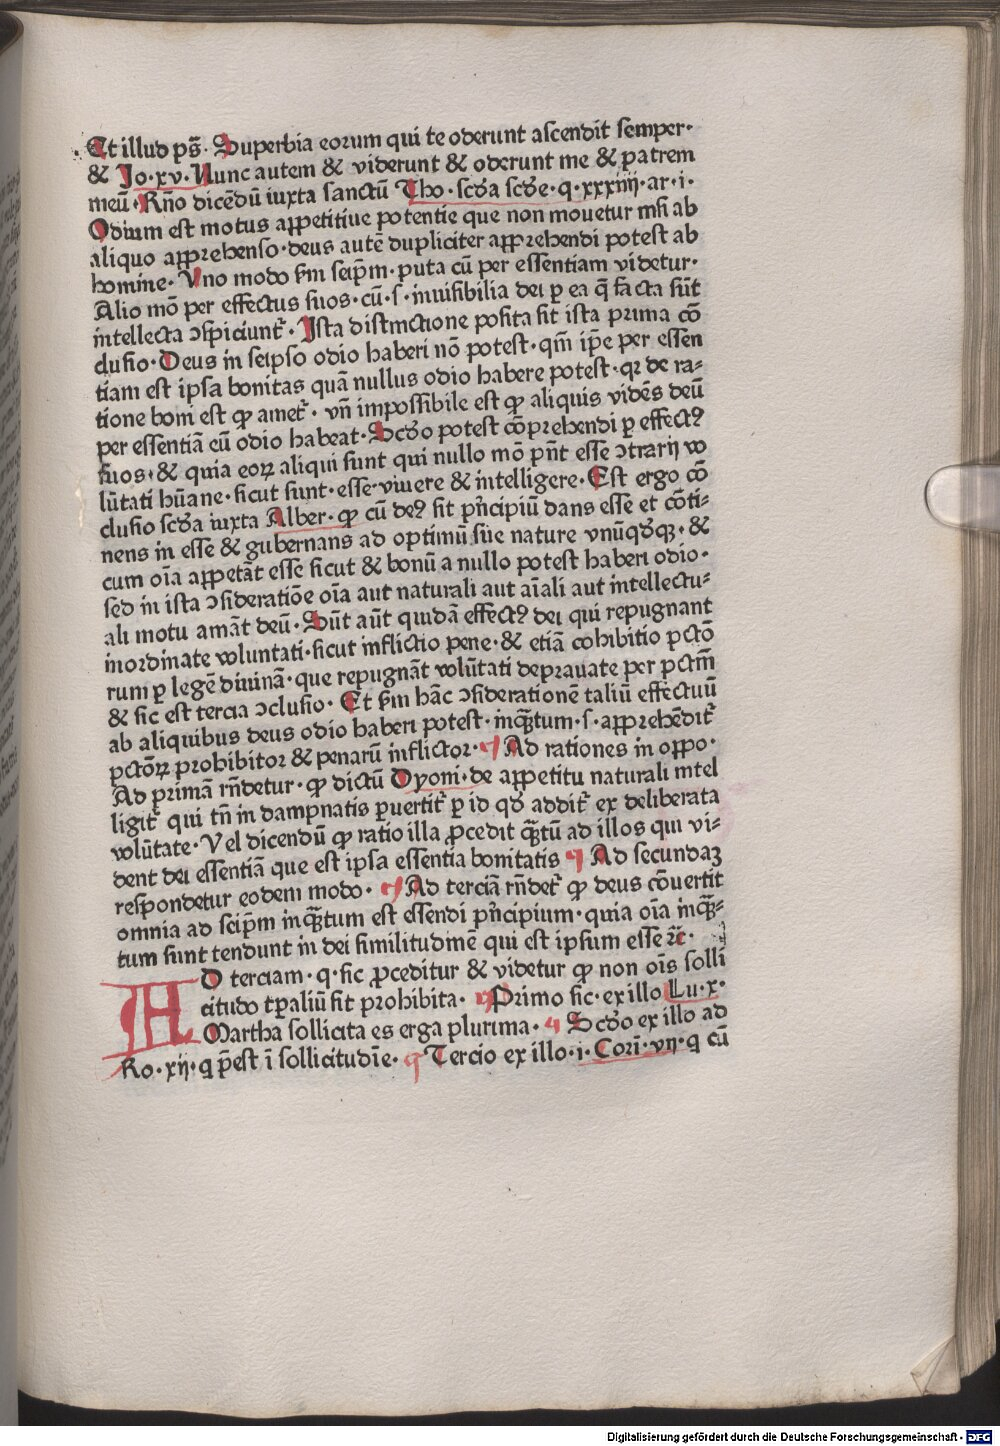 Et illud ps̄. Superbia eorum qui te oderunt ascendit semper.
& Jo.xv. Nunc autem & viderunt & oderunt me & patrem
meū. Rn̄o dicēdū iuxta sanctū Tho. scḋa scḋe.q.xxxiiij.ar.i.
Odium est motus appetitiue potentie que non mouetur nisi ab
aliquo apprehenso.deus autē dupliciter apprehendi potest ab
homine. Vno modo scḋm seip̄m.puta cū per essentiam videtur.
Alio mō per effectus suos.cū.s.inuisibilia dei ꝑ ea q̄ facta sūt
intellecta ɔspiciunt᷑. Ista distinctione posita sit ista prima cō
clusio. Deus in seipso odio haberi nō potest.qm̄ ip̄e per essen
tiam est ipsa bonitas quā nullus odio habere potest.qꝛ de ra-
tione boni est ꝙ amet᷑. vn̄ impossibile est ꝙ aliquis vidēs deū
per essentiā eū odio habeat. Scḋo potest cōprehendi ꝑ effectꝰ
suos.& quia eoꝝ aliqui sunt qui nullo mō pn̄t esse ɔtrarij vo
lūtati hūane.sicut sunt.esse.viuere & intelligere. Est ergo cō
clusio scḋa iuxta Alber. ꝙ cū deꝰ sit pn̄cipiū dans esse et cōti-
nens in esse & gubernans ad optimū sue nature vnūqḋqꝫ.&
cum oīa appetāt esse sicut & bonū a nullo potest haberi odio.
sed in ista ɔsideratiōe oīa aut naturali aut aīali aut intellectu-
ali motu amāt deū. Sūt aūt quidā effectꝰ dei qui repugnant
inordinate voluntati.sicut inflictio pene.& etiā cohibitio pctō
rum ꝑ legē diuinā.que repugnāt volūtati deprauate per pctm̄
& sic est tercia ɔclusio. Et scḋm hāc ɔsiderationē taliū effectuū
ab aliquibus deus odio haberi potest.inqꝫtum.s.apprehēdit᷑
pctōꝝ prohibitor & penarū inflictor. ¶ Ad rationes in oppo.
Ad primā rn̄detur.ꝙ dictū Dyoni.de appetitu naturali intel
ligit᷑ qui tn̄ in dampnatis ꝑuertit᷑ ꝑ id qḋ addit᷑ ex deliberata
volūtate. Vel dicendū ꝙ ratio illa ꝓcedit qꝫtū ad illos qui vi-
dent dei essentiā que est ipsa essentia bonitatis ¶ Ad secundaꝫ
respondetur eodem modo. ¶ Ad terciā rn̄det᷑ ꝙ deus cōuertit
omnia ad seip̄m inqꝫtum est essendi pn̄cipium.quia oīa inqꝫ-
tum sunt tendunt in dei similitudinē qui est ipsum esse ⁊c̄.
AD terciam.q.sic ꝓceditur & videtur ꝙ non oīs solli
citudo tp̄aliū sit prohibita. ¶ Primo sic.ex illo Lu.x.
Martha sollicita es erga plurima. ¶ Scḋo ex illo ad
Ro.xij.q p̄est ī sollicitudīe. ¶ Tercio ex illo.i. Corī.vij.q cū
Digitalisierung gefördert durch die Deutsche Forschungsgemeinschaft - DFG